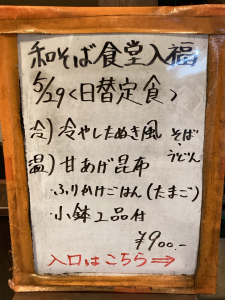 和そば食堂入福
5/29<日替定食>
冷) 冷やしたぬき風 そば・うどん
温) 甘あげ昆布
・ふりかけごはん(たまご)
・小鉢1品付
¥900.-
入口はこちら⇒